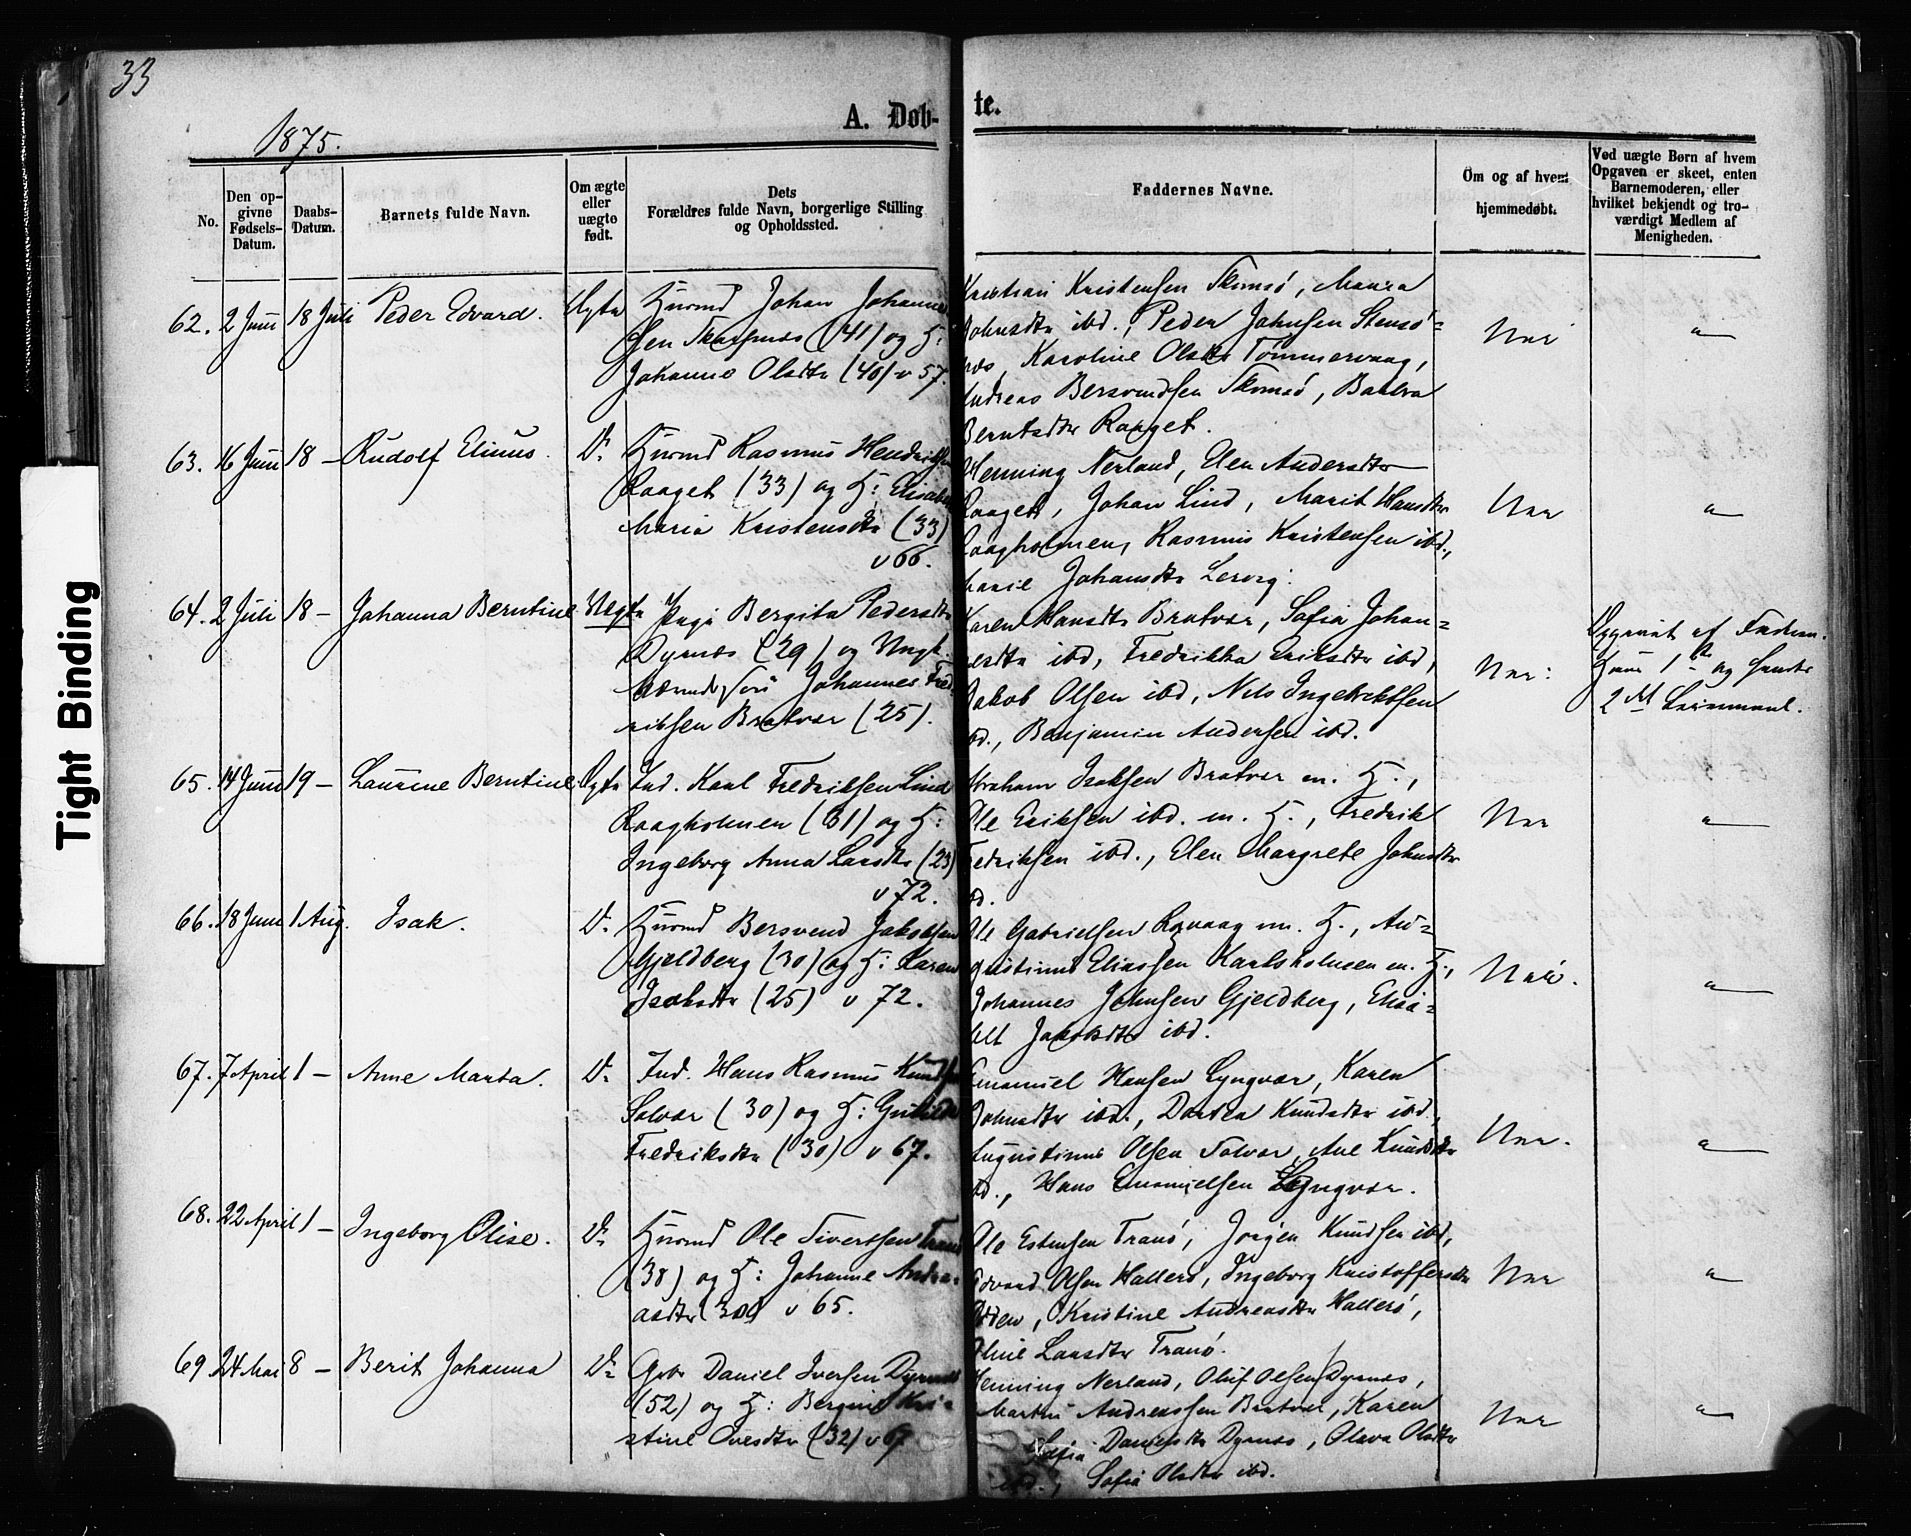 33
1875.
A. Døb-
te.
No.
Den op-
givne
Fødsels-
Datum.
Daabs-
Datum.
Barnets fulde Navn.
Om ægte
eller
uægte
født.
Dets
Forældres fulde Navn, borgerlige Stilling
og Opholdssted.
Faddernes Navne.
Om og af hvem
hjemmedøbt.
Ved uægte Børn af hvem
Opgaven er skeet, enten
Barnemoderen, eller
hvilket bekjendt og tro-
værdigt Medlem af
Menigheden.
62. 2 Juni 18 Juli Peder Edvard. Ægte
Johan
(41) og H:
Johanne Olsdtr (40) v 57.
Kristian Kristensen Skomsø,
Johnsdtr ibd., Peder Johnsen
Karoline Olsdtr Tømmervaag,
Andreas Bersvendsen Skomsø,
Berntsdtr Raaget.
Nei
63. 16 Juni 18 – Rudolf Elinus. Do
Rasmus
Raaget (33) og H:
Maria Kristensdtr (33)
v 66.
Henning Nerland, Elen Andersdtr
Raaget, Johan Lind, Marit Hansdtr
Raagholmen, Rasmus Kristensen ibd.,
Johansdtr Lervig.
Nei
64. 2 Juli 18 – Johanna Berntine Uegte
Pige Bergita Pedersdtr
Dyrnæs (29) og Ungk.
Johannes Fred-
riksen Bratvær (25).
Karen Hansdtr Bratvær, Sofia Johan-
nesdtr ibd, Fredrikka Eriksdtr ibd,
Jakob Olsen ibd, Nils Ingebrektsen
ibd., Benjamin Andersen ibd.
Nei.
Opgivet af Faderen.
Hans 1ste og hendes
2det Leiermaal.
65. 14 Juni 19 – Laurine Berntine. Ægte
Ind. Karl Fredriksen Lind
Raagholmen (31) og H:
Ingeborg Anna Larsdtr (23)
v 72.
Abraham Isaksen Bratvær m. H.,
Ole Eriksen ibd. m. H., Fredrik
Fredriksen ibd., Elen Margrete Johnsdtr
ibd.
Nei
66. 18 Juni 1 Aug. Isak. Do
Bersvend Jakobsen
Gjeldberg (30) og H: Karen
Isaksdtr (25) v 72.
Ole Gabrielsen m. H., Au-
gustinus Eliassen Karlsholmen m. H.,
Johannes Johnsen Gjeldberg, Elisa-
bet Jakobsdtr ibd.
Nei.
67. 7 April 1 – Anne Marta. Do
Ind. Hans Rasmus Knudsen
Solvær (30) og H:
Fredriksdtr (30) v 67.
Emanuel Hansen Lyngvær, Karen
Johnsdtr ibd., Dortea Knudsdtr ibd.,
Augustinus Olsen Solvær, Ane Knudsdtr
ibd., Hans Emanuelsen Lyngvær.
Nei.
68. 22 April 1 – Ingeborg Olise. Do
Ole Sivertsen Tranø
(38) og H: Johanne Andre-
asdtr (30) v 65.
Ole Estensen Tranø, Jørgen Knudsen ibd,
Edvard Olsen Hallerø, Ingeborg Kristoffersdtr
Odden, Kristine Andreasdtr Hallerø,
Oline Larsdtr Tranø.
Nei
69 24 Mai 8 – Berit Johanna Do
Gbr Daniel Iversen Dyrnæs
(52) og H: Bergine Kri-
stine Ovesdtr (32) v 67
Henning Nerland, Oluf Olsen Dyrnæs,
Martin Andreassen Bratvær, Karen
Sofia Danielsdtr Dyrnæs, Olava Olsdtr
ibd., Sofia Olsdtr ibd.
Nei
Tight Binding